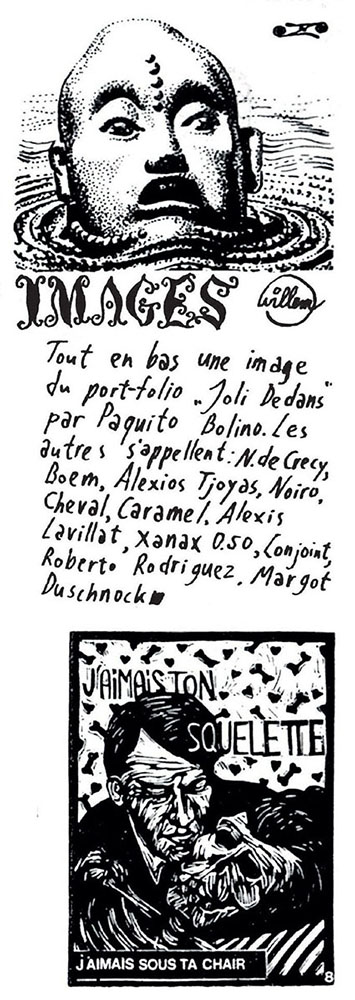 IMAGES
Willem
Tout en bas une image
du port-folio „Joli Dedans"
par Paquito Bolino. Les
autres s'appellent: N. de Crecy,
Boem, Alexios Tjoyas, Noiro,
Cheval, Caramel, Alexis
Lavillat, Xanax 0.50, Conjoint,
Roberto Rodriguez, Margot
Duschnock
J'AIMAIS TON
SQUELETTE
J'AIMAIS SOUS TA CHAIR
8